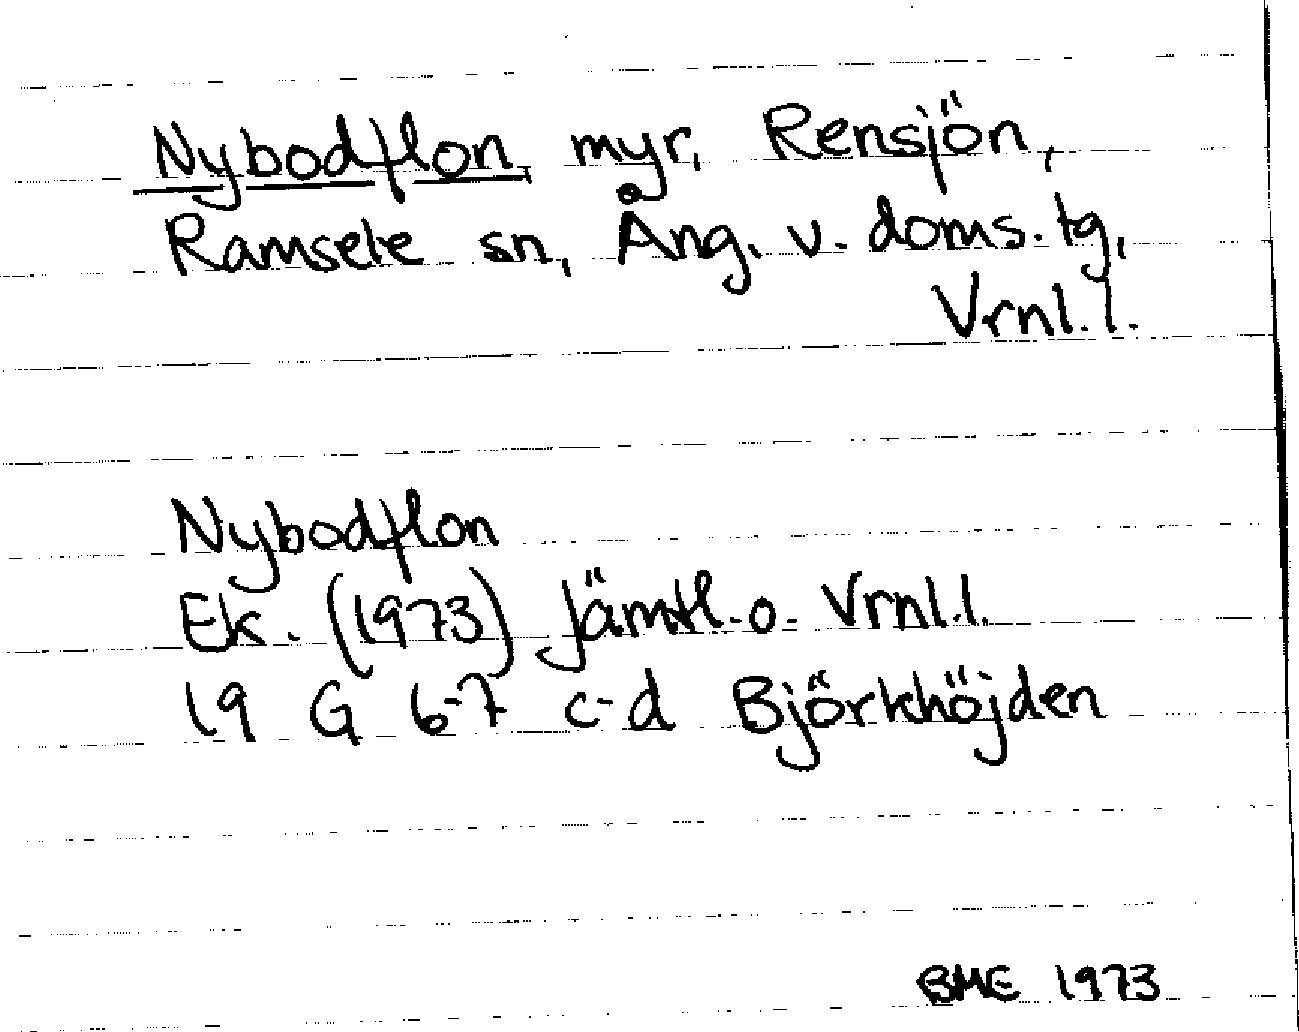 Nybodflon, myr, Rensjön,
Ramsele sn, Ång. v. doms. tg,
Vrnl. l.
Nybodflon
Ek. (1973) Jämtl. o. Vrnl. l.
19 G 6-7 c-d Björkhöjden
BME 1973